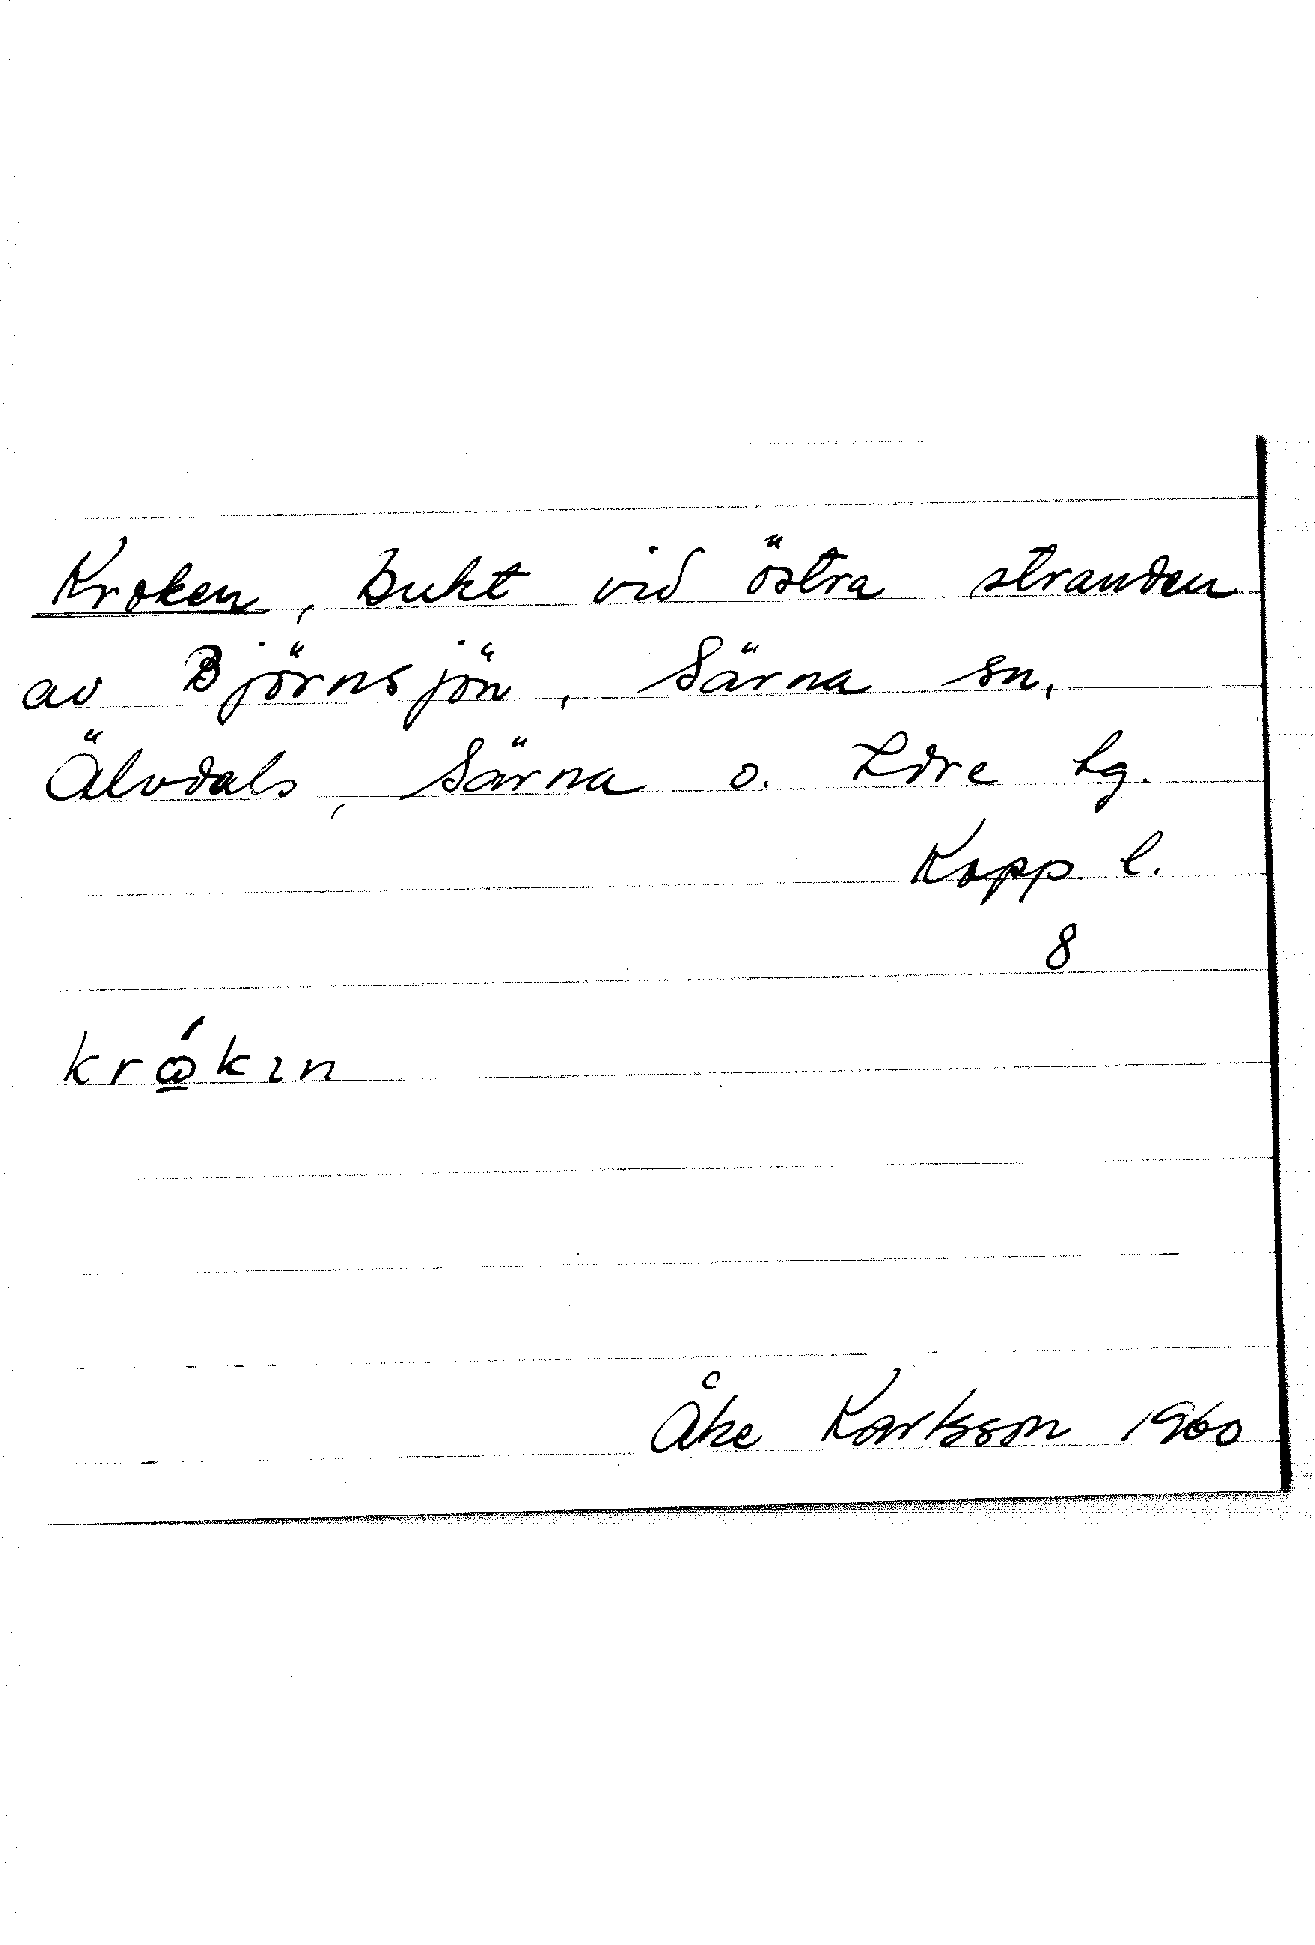 Kroken, bukt vid östra stranden
av Björnsjön, Särna sn,
Älvdals, Särna o. Idre tg.
Kopp l.
8
krώ̲kın
Åke Karlsson 1960